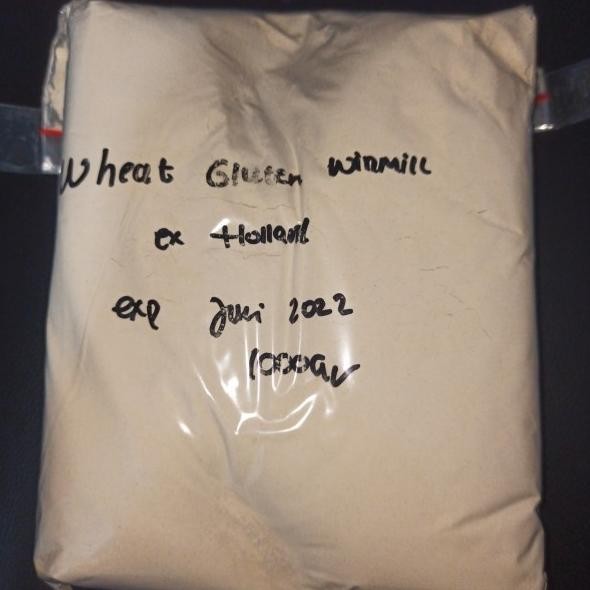 Wheat Gluten Winmill
ex Holland
exp Juni 2022
1000gr